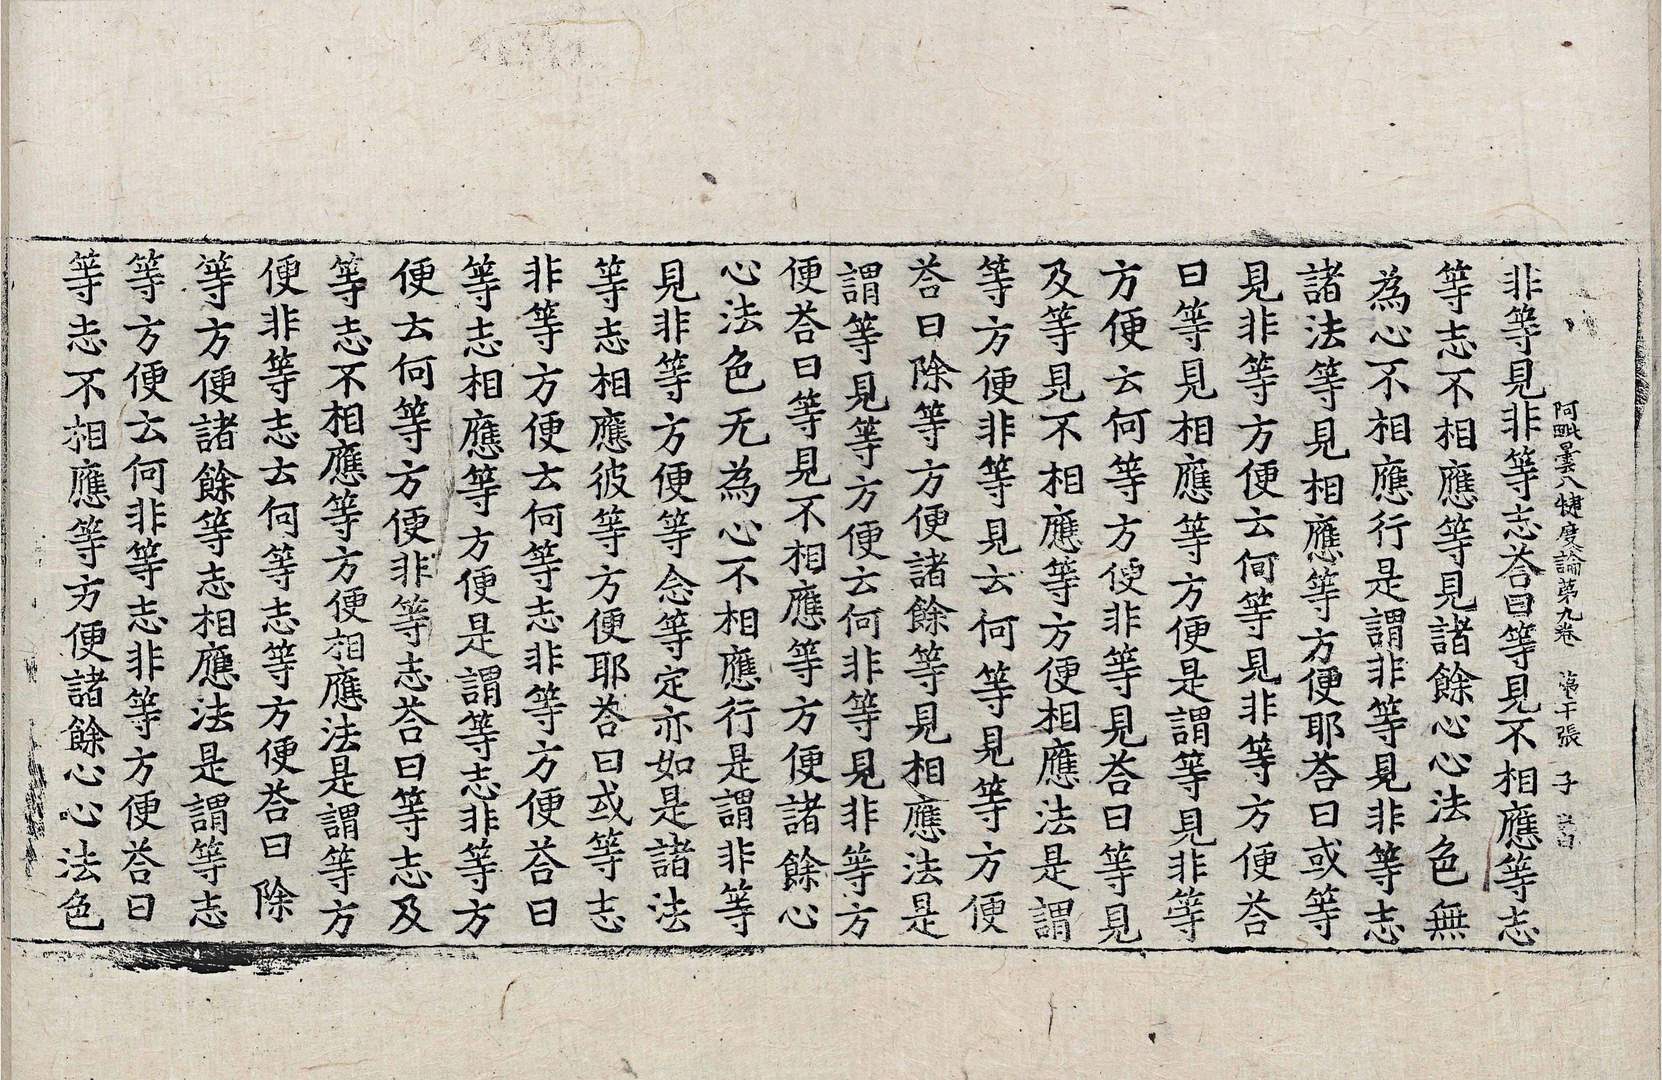 阿毗曇八犍度論第九卷　第二十張　子
非等見非等志荅曰等見不相應等志
等志不相應等見諸餘心心法色無
為心不相應行是謂非等見非等志
諸法等見相應等方便耶荅曰或等
見非等方便云何等見非等方便荅
曰等見相應等方便是謂等見非等
方便云何等方便非等見荅曰等見
及等見不相應等方便相應法是謂
等方便非等見云何等見等方便
荅曰除等方便諸餘等見相應法是
謂等見等方便云何非等見非等方
便荅曰等見不相應等方便諸餘心
心法色无為心不相應行是謂非等
見非等方便等念等定亦如是諸法
等志相應彼等方便耶荅曰或等志
非等方便云何等志非等方便荅曰
等志相應等方便是謂等志非等方
便云何等方便非等志荅曰等志及
等志不相應等方便相應法是謂等方
便非等志云何等志等方便荅曰除
等方便諸餘等志相應法是謂等志
等方便云何非等志非等方便荅曰
等志不相應等方便諸餘心心法色